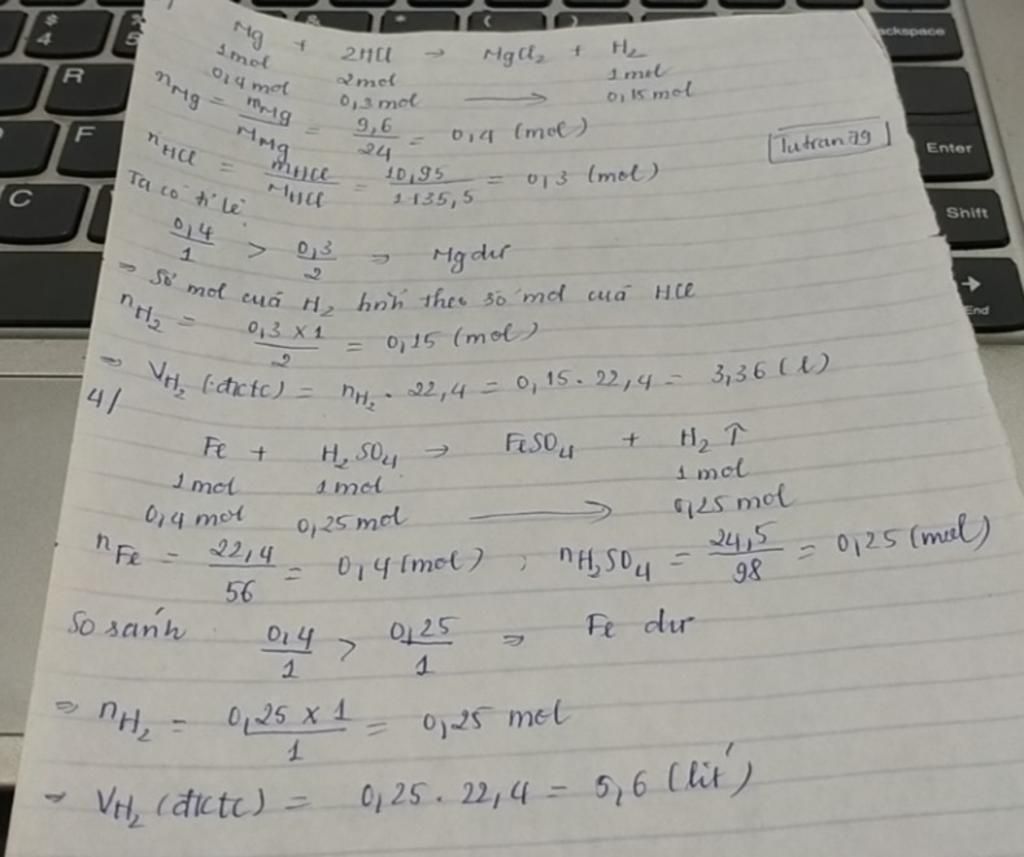 Mg + 2HCl → MgCl₂ + H₂
1mol 2mol 1mol
0,4mol 0,3mol → 0,15mol
nMg = mMg/MMg = 9,6/24 = 0,4 (mol)
[Tutran79]
nHCl = mHCl/MHCl = 10,95/1+35,5 = 0,3 (mol)
Ta có tỉ lệ
0,4/1 > 0,3/2 ⇒ Mg dư
⇒ Số mol của H₂ tính theo số mol của HCl
nH₂ = 0,3 x 1/2 = 0,15 (mol)
⇒ VH₂ (đktc) = nH₂ . 22,4 = 0,15 . 22,4 = 3,36 (l)
4/
Fe + H₂SO₄ → FeSO₄ + H₂ ↑
1mol 1mol 1mol
0,4mol 0,25mol → 0,25mol
nFe = 22,4/56 = 0,4 (mol) ; nH₂SO₄ = 24,5/98 = 0,25 (mol)
So sánh 0,4/1 > 0,25/1 ⇒ Fe dư
⇒ nH₂ = 0,25 x 1/1 = 0,25 mol
⇒ VH₂ (đktc) = 0,25 . 22,4 = 5,6 (lít)
$
4
5
R
F
C
ckspace
Enter
Shift
→
End